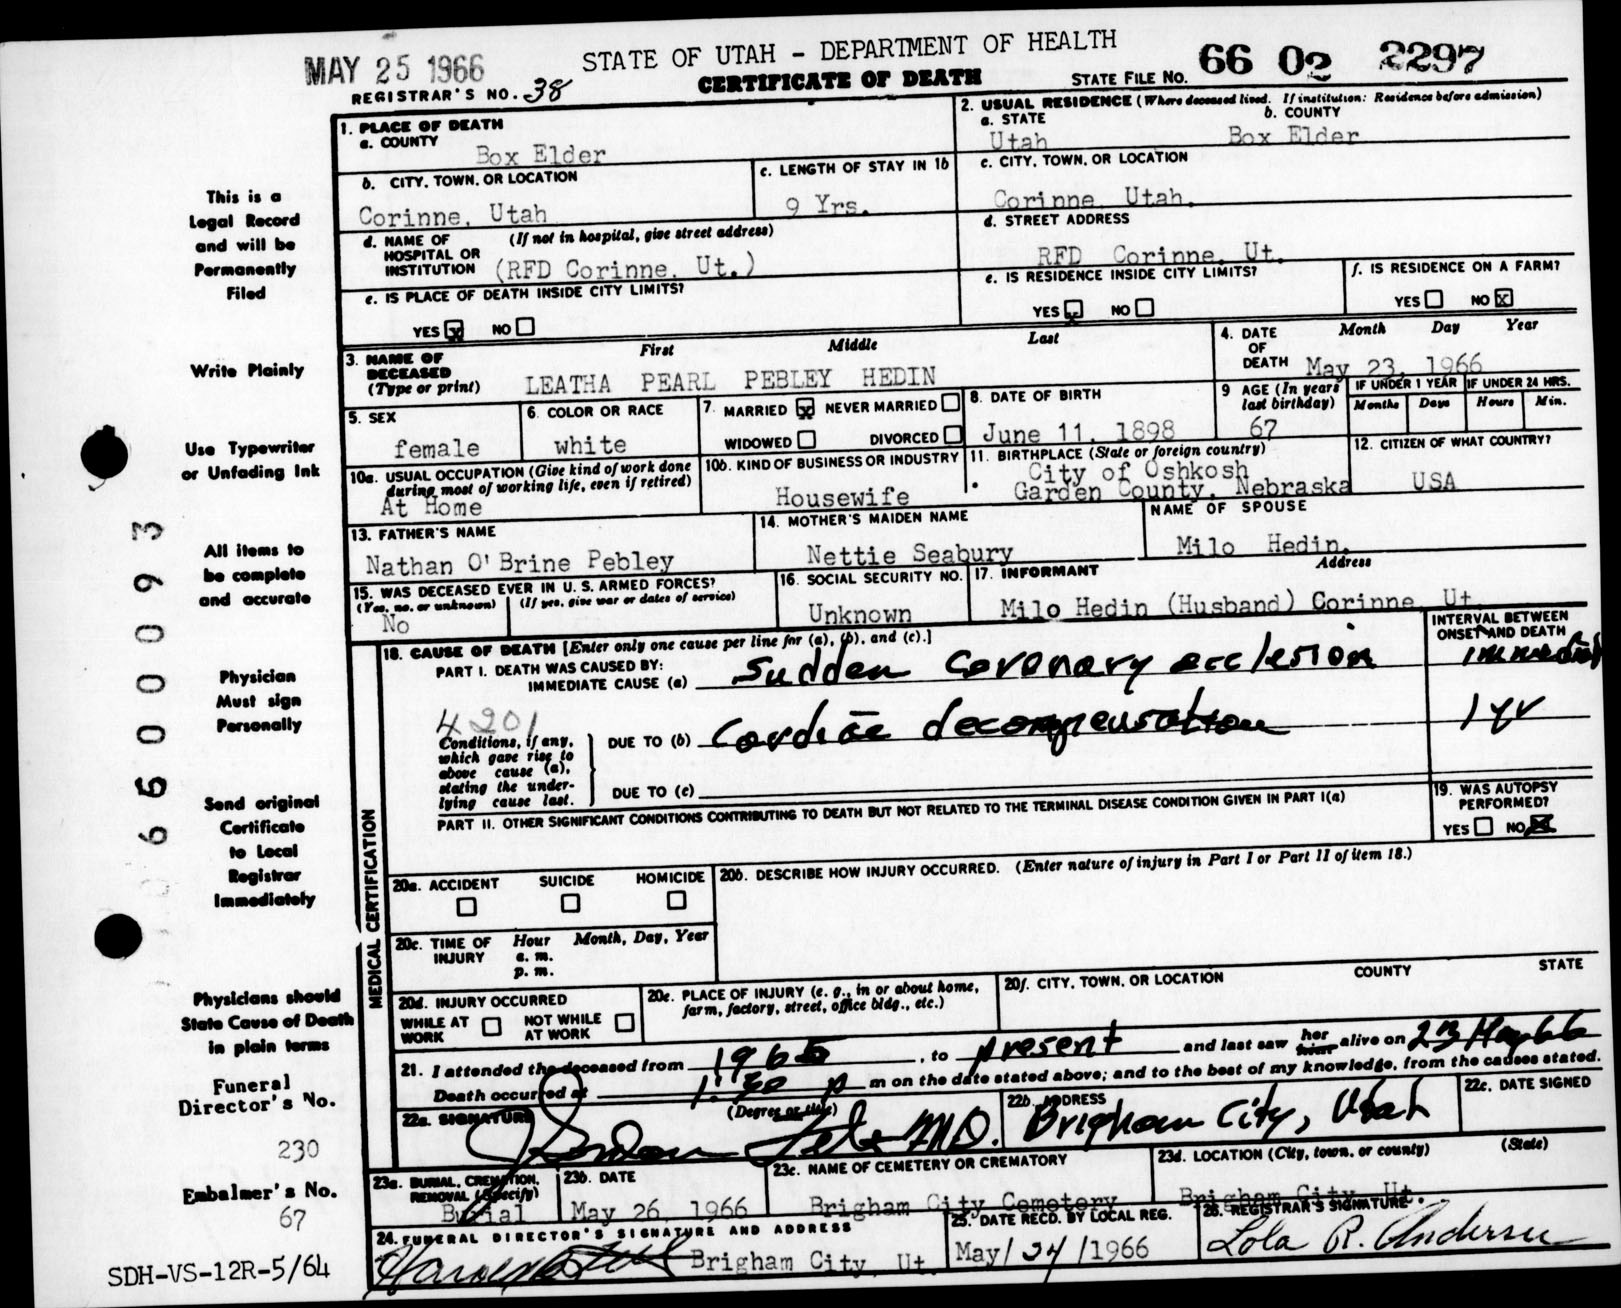 MAY 25 1966
STATE OF UTAH - DEPARTMENT OF HEALTH
CERTIFICATE OF DEATH
REGISTRAR'S NO. 38
STATE FILE NO. 66 02 2297
1. PLACE OF DEATH
a. COUNTY
Box Elder
2. USUAL RESIDENCE (Where deceased lived. If institution: Residence before admission)
a. STATE b. COUNTY
Utah Box Elder
b. CITY, TOWN, OR LOCATION
Corinne, Utah
c. LENGTH OF STAY IN 1b
9 Yrs.
c. CITY, TOWN, OR LOCATION
Corinne Utah.
d. NAME OF HOSPITAL OR INSTITUTION (If not in hospital, give street address)
(RFD Corinne, Ut.)
d. STREET ADDRESS
RFD Corinne, Ut.
e. IS PLACE OF DEATH INSIDE CITY LIMITS?
YES x NO
e. IS RESIDENCE INSIDE CITY LIMITS?
YES x NO
f. IS RESIDENCE ON A FARM?
YES NO x
3. NAME OF DECEASED (Type or print)
First Middle Last
LEATHA PEARL PEBLEY HEDIN
4. DATE OF DEATH Month Day Year
May 23, 1966
5. SEX
female
6. COLOR OR RACE
white
7. MARRIED x NEVER MARRIED
WIDOWED DIVORCED
8. DATE OF BIRTH
June 11, 1898
9 AGE (In years last birthday)
67
IF UNDER 1 YEAR IF UNDER 24 HRS.
Months Days Hours Min.
10a. USUAL OCCUPATION (Give kind of work done during most of working life, even if retired)
At Home
10b. KIND OF BUSINESS OR INDUSTRY
Housewife
11. BIRTHPLACE (State or foreign country)
City of Oshkosh
Garden County, Nebraska
12. CITIZEN OF WHAT COUNTRY?
USA
13. FATHER'S NAME
Nathan O'Brine Pebley
14. MOTHER'S MAIDEN NAME
Nettie Seabury
NAME OF SPOUSE
Milo Hedin.
15. WAS DECEASED EVER IN U. S. ARMED FORCES?
(Yes, no, or unknown) (If yes, give war or dates of service)
No
16. SOCIAL SECURITY NO.
Unknown
17. INFORMANT Address
Milo Hedin (Husband) Corinne, Ut.
18. CAUSE OF DEATH [Enter only one cause per line for (a), (b), and (c).]
INTERVAL BETWEEN ONSET AND DEATH
PART I. DEATH WAS CAUSED BY:
IMMEDIATE CAUSE (a) Sudden Coronary occlesion
4201
Conditions, if any, which gave rise to above cause (a), stating the underlying cause last.
DUE TO (b) Cardiac decompensation 1 yr
DUE TO (c)
PART II. OTHER SIGNIFICANT CONDITIONS CONTRIBUTING TO DEATH BUT NOT RELATED TO THE TERMINAL DISEASE CONDITION GIVEN IN PART I(a)
19. WAS AUTOPSY PERFORMED?
YES NO x
MEDICAL CERTIFICATION
20a. ACCIDENT SUICIDE HOMICIDE
20b. DESCRIBE HOW INJURY OCCURRED. (Enter nature of injury in Part I or Part II of item 18.)
20c. TIME OF INJURY Hour Month, Day, Year
a. m.
p. m.
20d. INJURY OCCURRED
WHILE AT WORK NOT WHILE AT WORK
20e. PLACE OF INJURY (e. g., in or about home, farm, factory, street, office bldg., etc.)
20f. CITY, TOWN, OR LOCATION COUNTY STATE
21. I attended the deceased from 1965, to present and last saw her alive on 23 May 66
Death occurred at 1:30 p m on the date stated above; and to the best of my knowledge, from the causes stated.
22a. SIGNATURE (Degree or title)
M.D.
22b. ADDRESS
Brigham City, Utah
22c. DATE SIGNED
23a. BURIAL, CREMATION, REMOVAL (Specify)
Burial
23b. DATE
May 26, 1966
23c. NAME OF CEMETERY OR CREMATORY
Brigham City Cemetery
23d. LOCATION (City, town, or county) (State)
Brigham City, Ut.
24. FUNERAL DIRECTOR'S SIGNATURE AND ADDRESS
Brigham City, Ut.
25. DATE RECD. BY LOCAL REG.
May/24/1966
26. REGISTRAR'S SIGNATURE
Lola R. Andersen
This is a
Legal Record
and will be
Permanently
Filed
Write Plainly
Use Typewriter
or Unfading Ink
All items to
be complete
and accurate
Physician
Must sign
Personally
Send original
Certificate
to Local
Registrar
Immediately
Physicians should
State Cause of Death
in plain terms
Funeral
Director's No.
230
Embalmer's No.
67
SDH-VS-12R-5/64
66000093